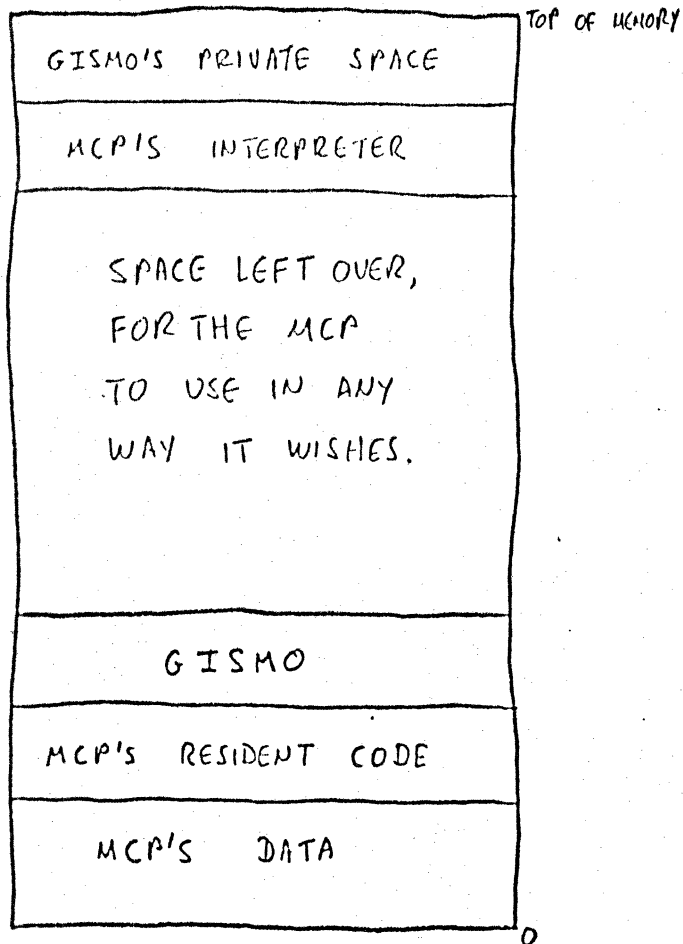 TOP OF MEMORY
GISMO'S PRIVATE SPACE
MCP'S INTERPRETER
SPACE LEFT OVER,
FOR THE MCP
TO USE IN ANY
WAY IT WISHES.
GISMO
MCP'S RESIDENT CODE
MCP'S DATA
0